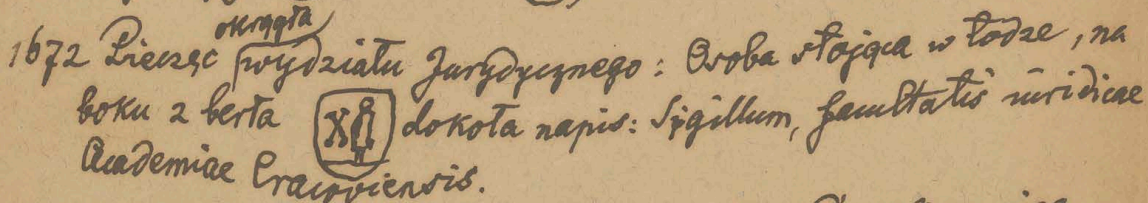 1672 Pieczęć okrągła wydziału Jurydycznego: Osoba stojąca w łodze, na
boku 2 berła dokoła napis: Sigillum, facultatis iuridicae
Academiae Cracoviensis.